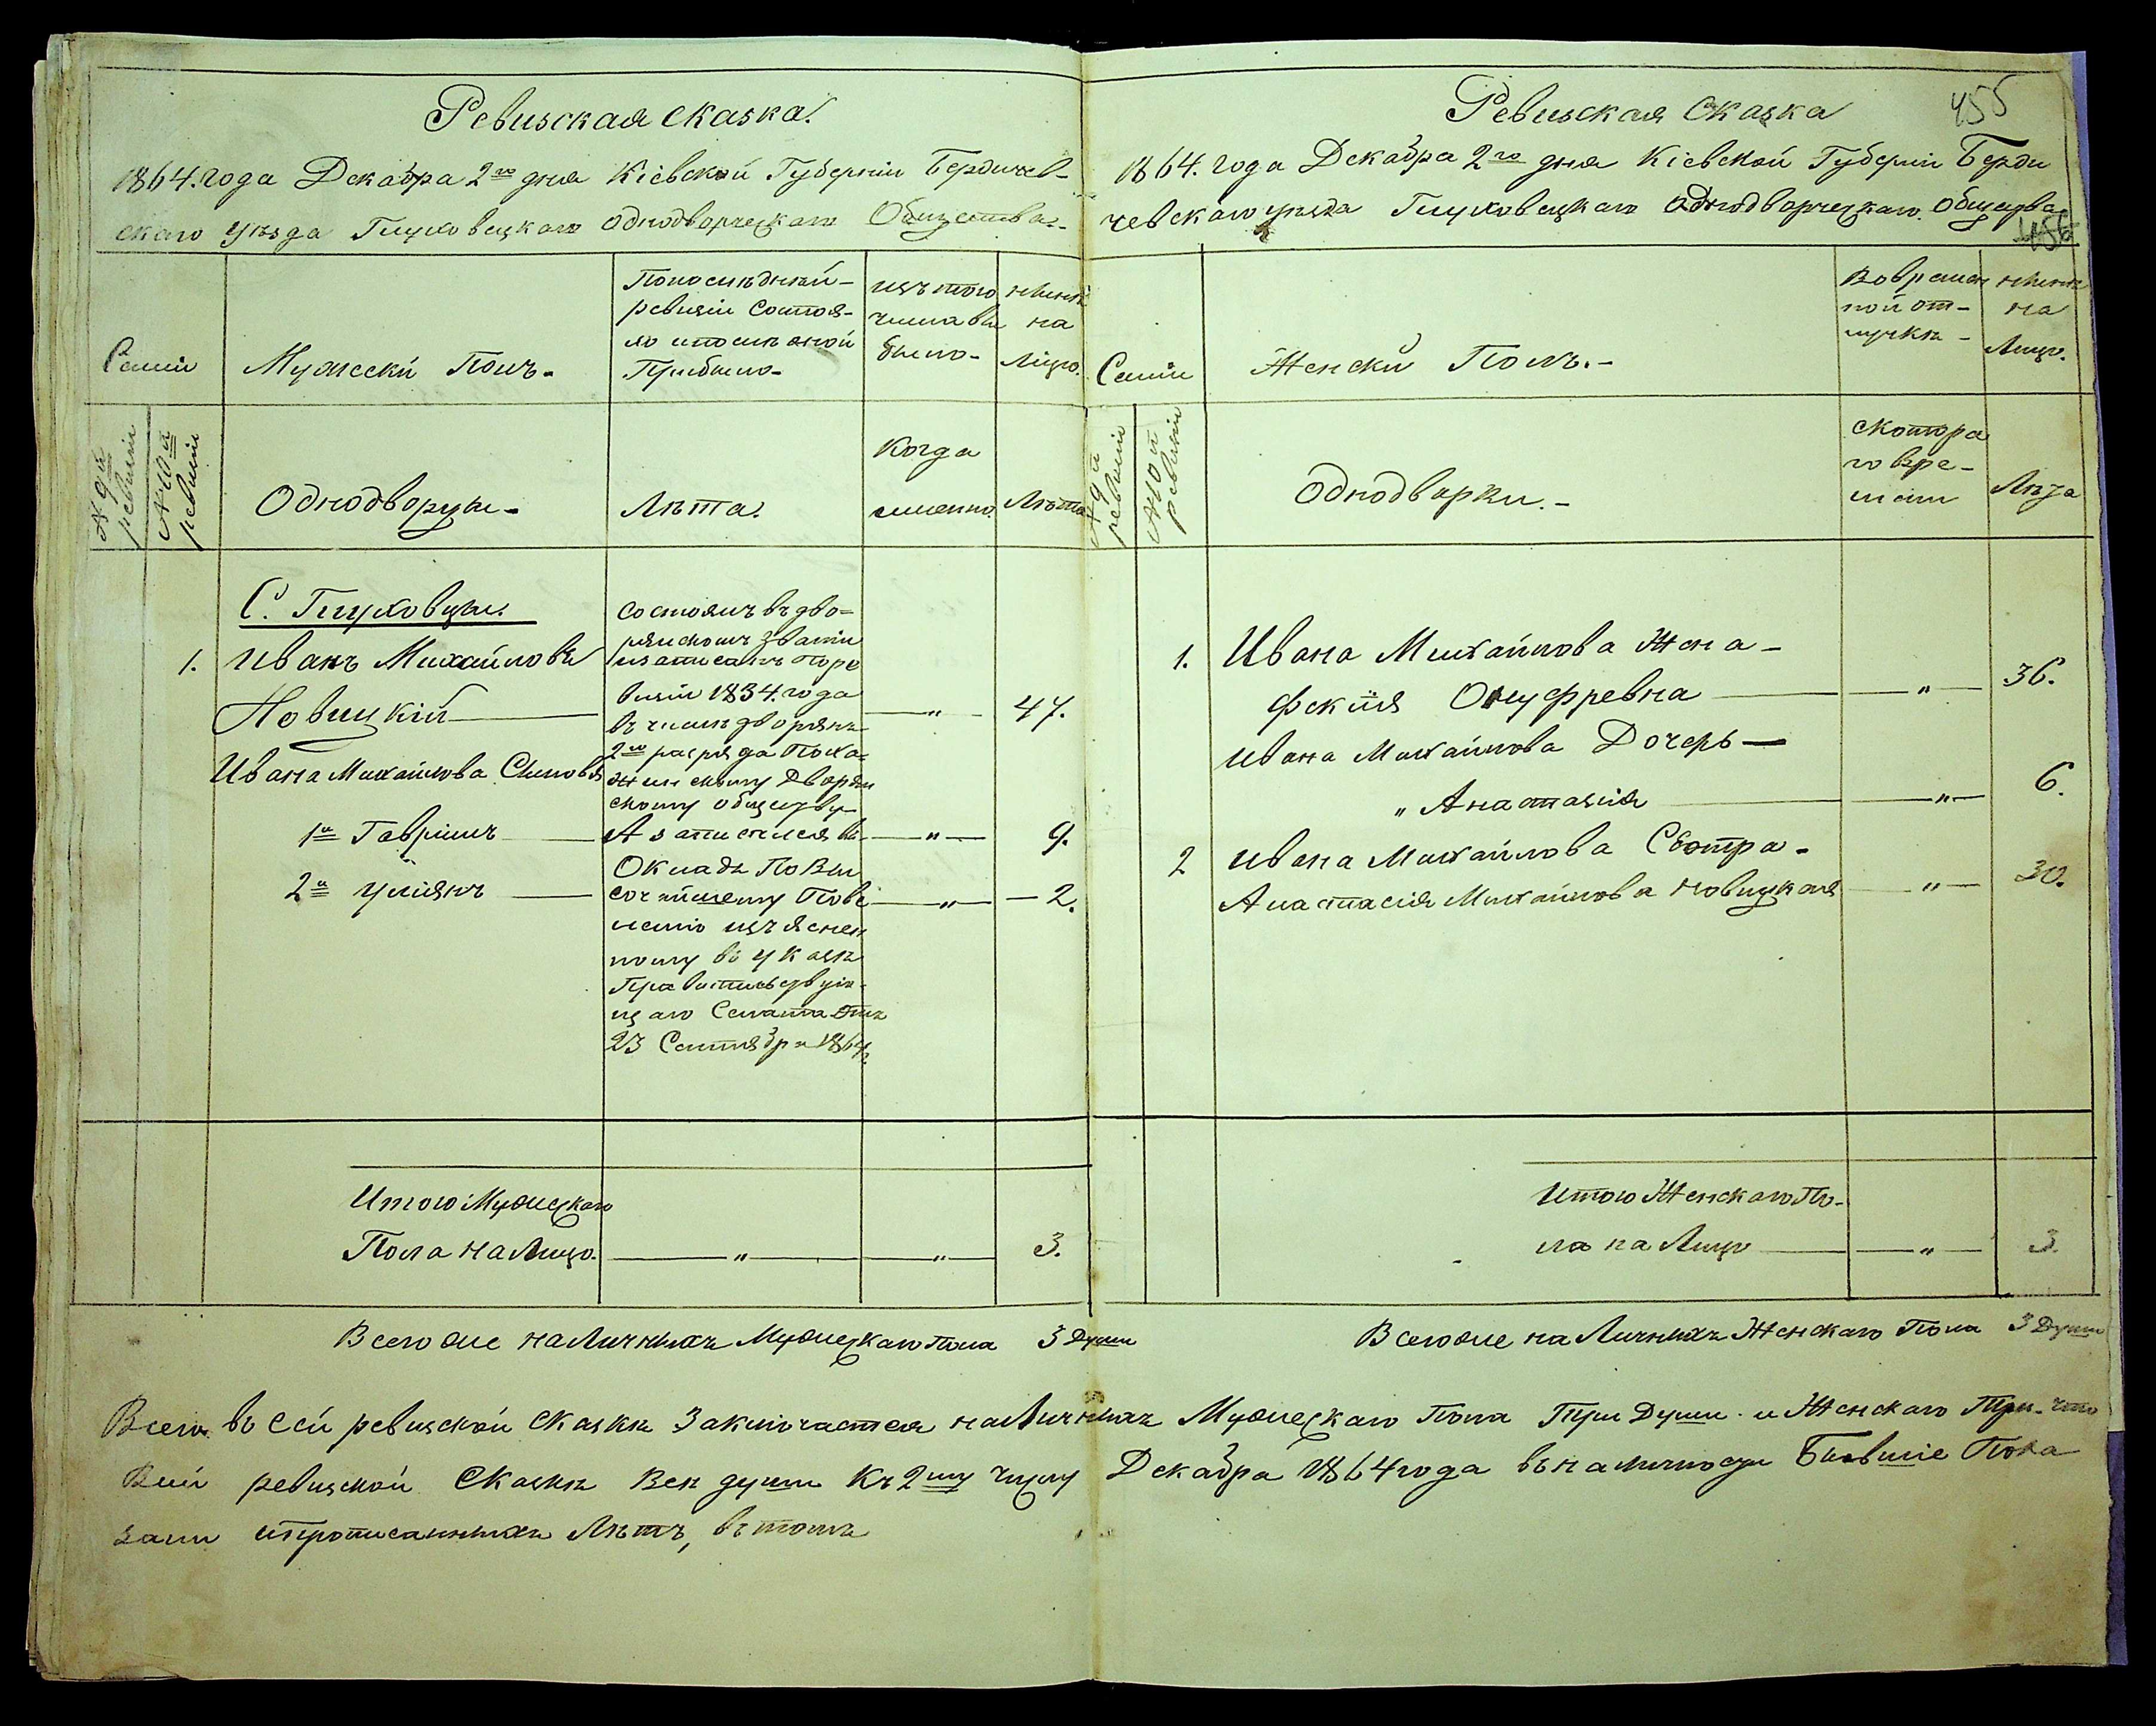 Ревизская сказка.
1864. года Декабря 2го дня Кіевской Губерніи Бердичев-
скаго уѣзда Глуховецкаго Однодворческаго Общества.-
Семіи
Мужескй Полъ.-
Попоследнѣй-
ревизіи Состоя-
ло ипослѣ оной
Прибыло-
изъ того
числа вы
было-
ныне
на
Лицо.
№ 9й
ревизіи
№ 10й
ревизіи
Однодворцы-
Лѣта.
Когда
именно.
Лѣта
С. Глуховцы.
1. Иванъ Михайловъ
Новицкій 47.
Ивана Михайлова Сыновья
1й Гавріилъ 9.
2й Уліянъ 2.
состоялъ въ дво-
рянскомъ званіи
изаписанъ поре
визіи 1834. года
въ числѣ дворянъ
2го разряда
скому обществу
А записался въ
Окладъ По Вы
сочайшему Пове
ленію изъяснен
ному въ указѣ
Правительствую-
щаго Сената отъ
23 Сентября 1864
Итого Мужескаго
Пола на Лицо. 3.
Всего же наличныхъ Мужескаго пола 3 Души
Ревизская Сказка
455
1864. года Декабря 2го дня Кіевской Губерніи Берди
чевскаго уѣзда Глуховецкаго Однодворческаго. Общества
456
Семіи
Женскй Полъ.-
Вовремен
ной от-
лучкѣ-
ныне
на
Лицо.
№ 9й
ревизіи
№ 10й
ревизіи
Однодворки.-
скотора
го вре-
мени
Лѣта
1. Ивана Михайлова Жена-
Онуфревна 36.
Ивана Михайлова Дочерь-
„ Анастасія 6.
2 Ивана Михайлова Сестра-
Анастасія Михайлова Новицкая 30.
Итого Женскаго По-
ла на Лицо 3.
Всегоже на Личныхъ Женскаго Пола 3 Души
Всего въ сей ревизской Сказкѣ Заключается наЛичныхъ Мужескаго Пола Три Души и Женскаго Три- что
Всей ревизской Сказкѣ Всѣ души Къ 2му числу Декабря 1864 года въ наличности Бывшіе Пока
заны ипрописанныхъ Лѣтъ, въ томъ